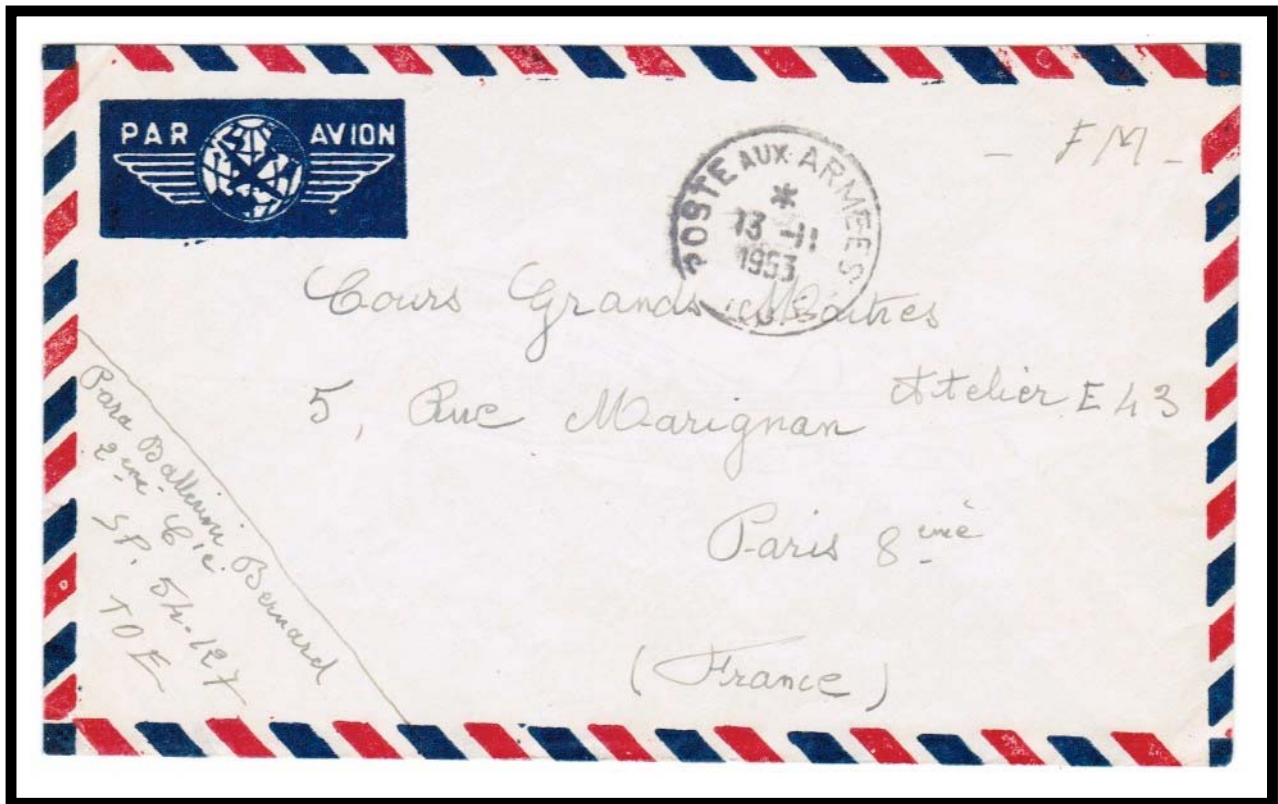 PAR AVION
- FM -
POSTE AUX ARMEES
*
13 -11
1953
Cours Grands Maîtres
5, Rue Marignan Atelier E 43
Paris 8 ème
(France)
Para Bernard
2ème Cie
SP. 54.127
TOE